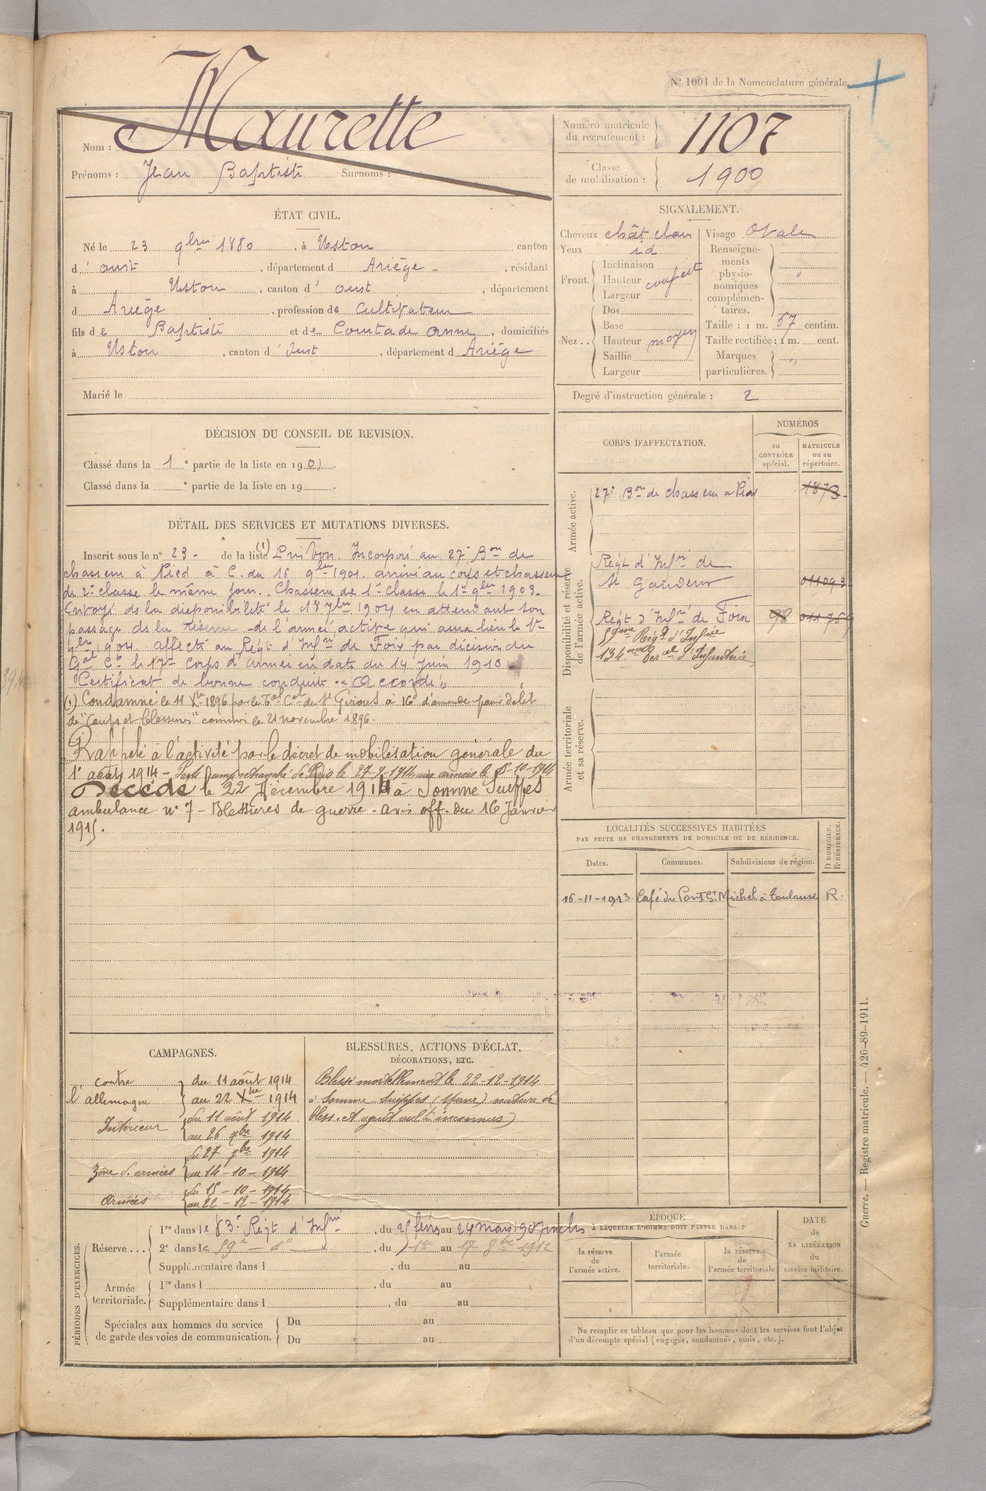 N° 1001 de la Nomenclature générale.
Nom : Maurette
Prénoms : Jean Baptiste Surnoms :
Numéro matricule du recrutement : 1107
Classe de mobilisation : 1900
ÉTAT CIVIL.
Né le 23 9bre 1880, à Ustou canton
d'oust, département d Ariège, résidant
à Ustou, canton d'oust, département
d Ariège, profession de Cultivateur
fils de Baptiste et de Comtade Anne, domiciliés
à Ustou, canton d'Oust, département d Ariège
Marié le
SIGNALEMENT.
Cheveux chât clair
Yeux id
Front. Inclinaison
Hauteur couvert
Largeur
Nez.. Dos
Base
Hauteur moyen
Saillie
Largeur
Visage Ovale
Renseignements physionomiques complémentaires. "
Taille : 1 m. 67 centim.
Taille rectifiée : 1 m. cent.
Marques particulières. "
Degré d'instruction générale : 2
DÉCISION DU CONSEIL DE REVISION.
Classé dans la 1e partie de la liste en 1901.
Classé dans la e partie de la liste en 19 .
CORPS D'AFFECTATION.
NUMÉROS
au CONTRÔLE spécial.
MATRICULE ou au répertoire.
Armée active.
27e Bon de chasseurs à Pied 1873
Disponibilité et réserve de l'armée active.
Régt d'Infrie de
St Gaudens
Régt d'Infrie de Foix
59ème Régt d'Infrie
134ème d'Infanterie
Armée territoriale et sa réserve.
DÉTAIL DES SERVICES ET MUTATIONS DIVERSES.
Inscrit sous le n° 23 de la liste (1) Incorporé au 27e Bon de
chasseurs à Pied à C. du 16 9bre 1901. arrivé au corps et chasseur
de 2e classe le même jour. Chasseur de 1e classe le 1er 9bre 1903.
Envoyé ds la disponibilité le 17 7bre 1904 en attendant son
passage ds la réserve de l'armée active qui aura lieu le 1er
9bre 1904. affecté au Régt d'Infrie de Foix par décision du
Gal Ct le 17e Corps d'armée en date du 14 Juin 1910
"Certificat de bonne conduite" "Accordé"
(1) Condamné le 11 Xbre 1896 par le Tal Cel de St Girons à 16f d'amende pour délit
de "Coups et blessures" commis le 21 novembre 1896.
Rappelé à l'activité par le décret de mobilisation générale du
1er août 1914
Décédé le 22 Décembre 1914 à Somme Suippes
ambulance n° 7 - Blessures de guerre - avis off. du 16 Janvier
1915.
LOCALITÉS SUCCESSIVES HABITÉES
PAR SUITE DE CHANGEMENTS DE DOMICILE OU DE RÉSIDENCE.
Dates. Communes. Subdivisions du région. D. DOMICILE. R. RÉSIDENCE.
16-11-1913 Café du Pont St Michel à Toulouse R.
CAMPAGNES.
contre l'allemagne du 11 août 1914
au 22 Xbre 1914
Intérieur du 11 août 1914
au 26 7bre 1914
Zone d. armées du 27 7bre 1914
au 14-10-1914
Armées du 15-10-1914
au 22-12-1914
BLESSURES, ACTIONS D'ÉCLAT,
DÉCORATIONS, ETC.
Blessé mortellement le 22-12-1914
à Somme Suippes (Marne) nature de
PÉRIODES D'EXERCICES.
Réserve ...
1re dans le 83e Régt d'Infrie, du au 24 mars 1907 inclus
2e dans le 59e d°, du au 17 8bre 1912
Supplémentaire dans l , du au
Armée territoriale.
1re dans l , du au
Supplémentaire dans l , du au
Spéciales aux hommes du service de garde des voies de communication.
Du au
Du au
ÉPOQUE
À LAQUELLE L'HOMME DOIT PASSER DANS :
la réserve de l'armée active.
l'armée territoriale.
la réserve de l'armée territoriale.
DATE de LA LIBÉRATION du service militaire.
Ne remplir ce tableau que pour les hommes dont les services font l'objet
d'un décompte spécial (engagés, condamnés, omis, etc.).
Guerre. — Registre matricule. — 420-89-1911.